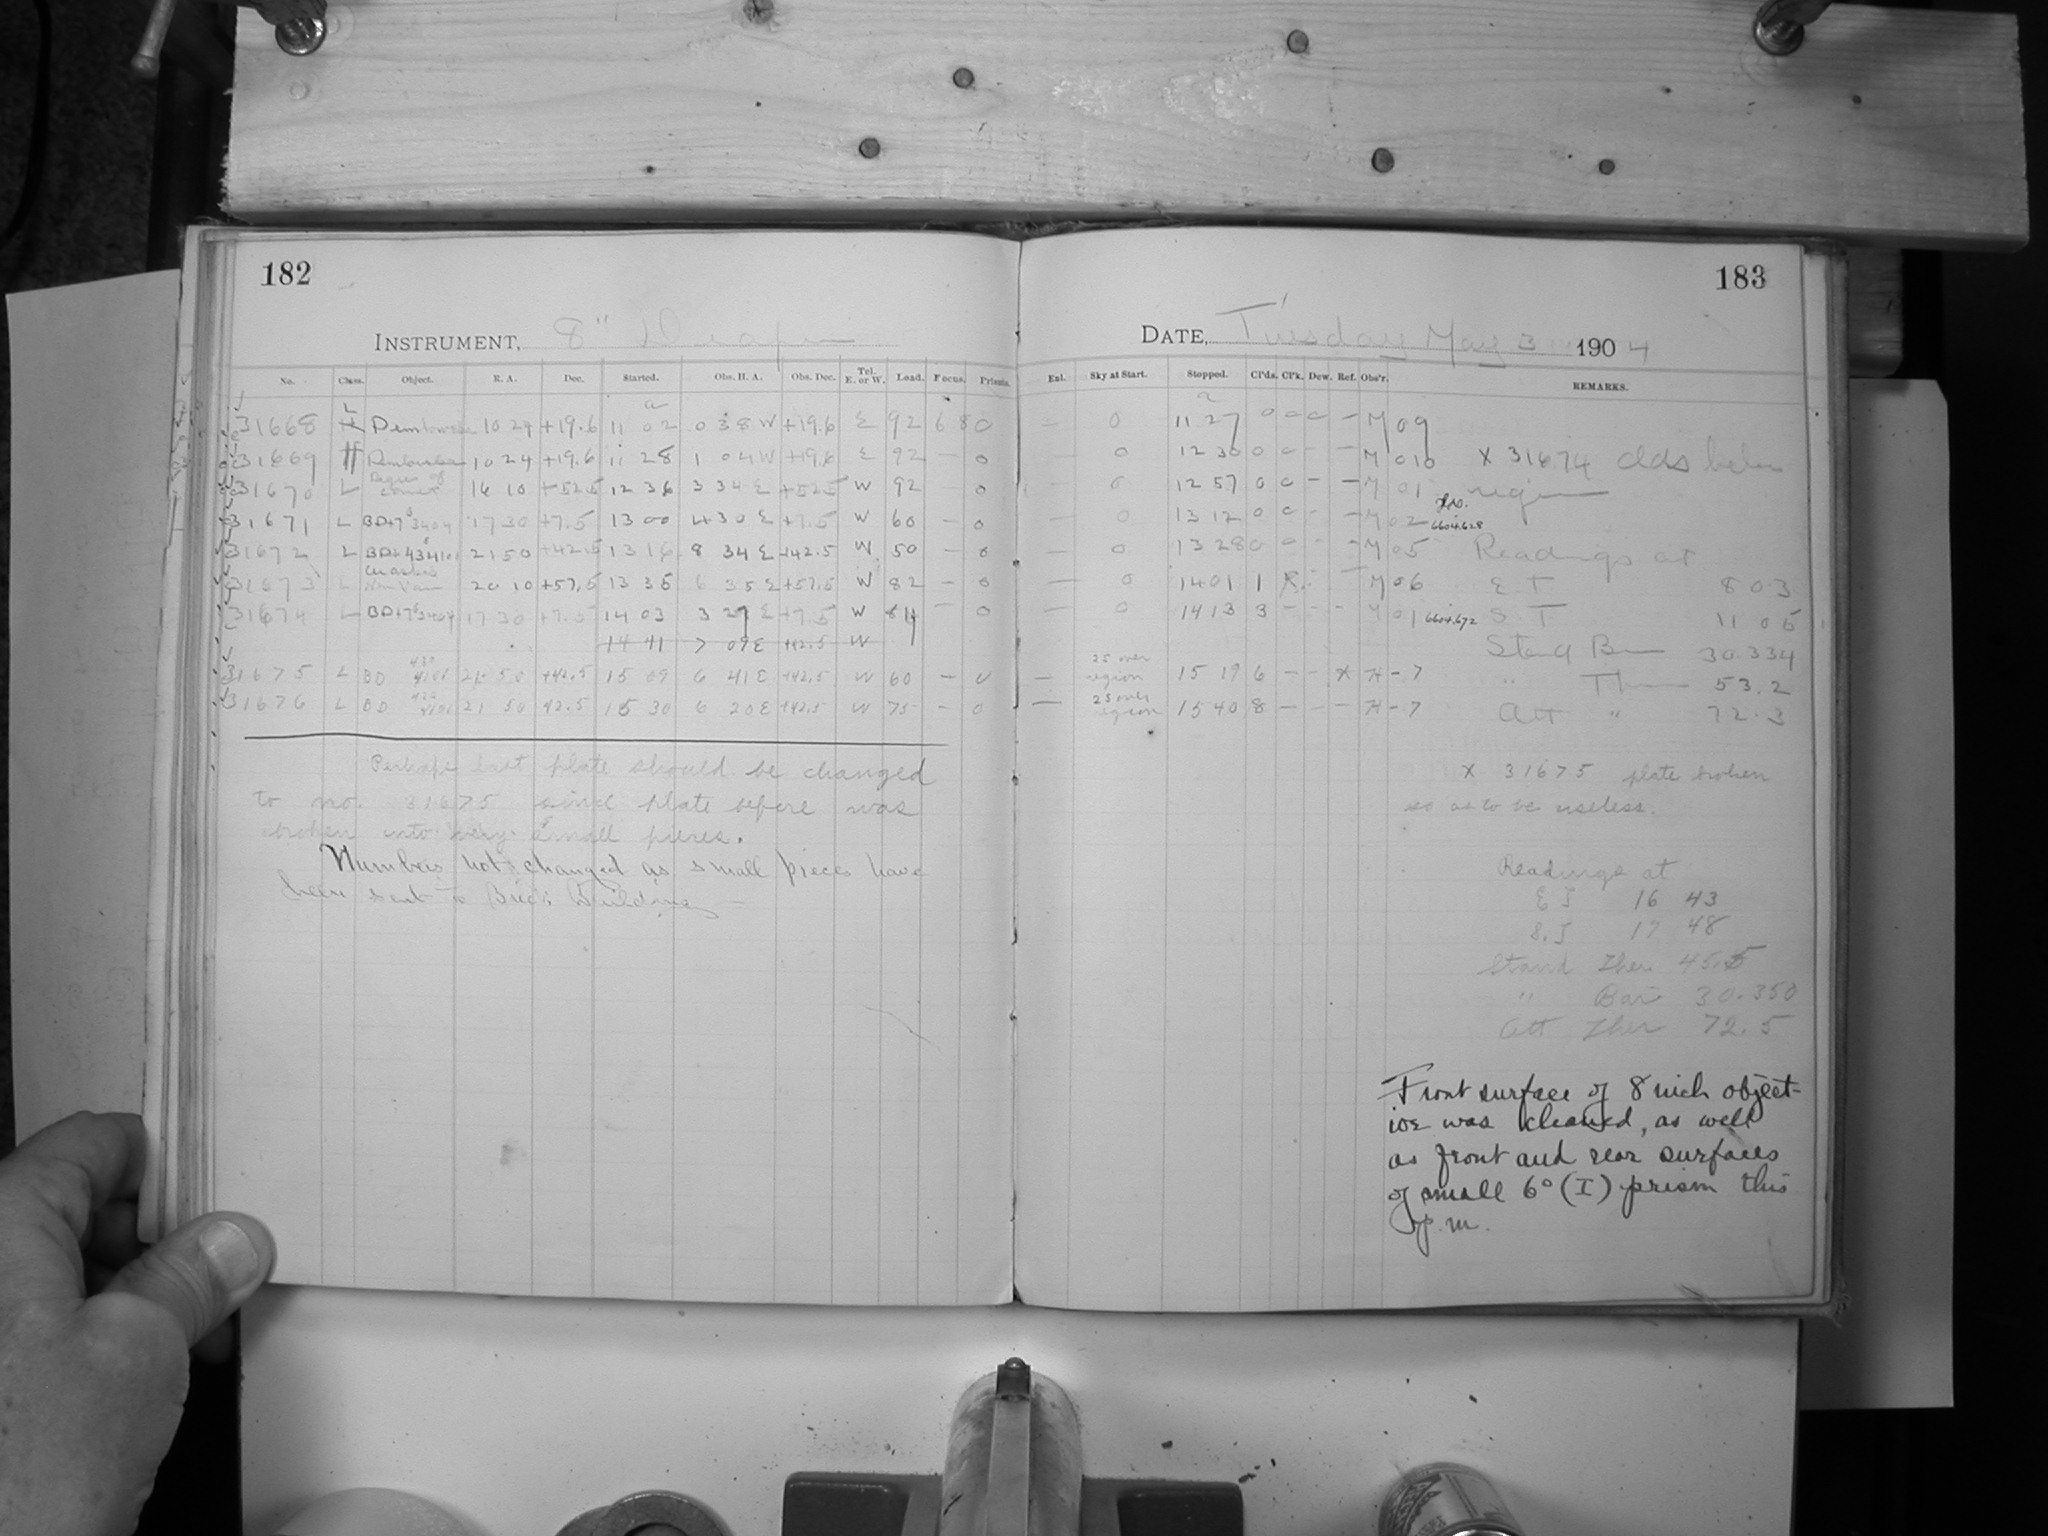 182
183
INSTRUMENT, 8" Draper
DATE, Tuesday May 3 1904
No. Class. Object. R. A. Dec. Started. Obs. H. A. Obs. Dec. Tel. E. or W. Load. Focus. Prisms.
Enl. Sky at Start. Stopped. Cl'ds. Cl'k. Dew. Ref. Obs'r. REMARKS.
31668 L 10 24 +19.6 11 02 0 38 W +19.6 E 92 6 8 0 — 0 11 27 0 0 0 - M 09
31669 H 10 24 +19.6 11 28 1 04 W +19.6 E 92 — 0 — 0 12 30 0 0 - - M 010 X 31674 clds below
31670 L Region of comet 16 10 +52.5 12 36 3 34 E +52.5 W 92 — 0 — 0 12 57 0 0 - - M 01 region
31671 L BD+7° 3404 17 30 +7.5 13 00 4 30 E +7.5 W 60 — 0 — 0 13 12 0 0 - - M 02
31672 L BD+43° 4101 21 50 +42.5 13 16 8 34 E +42.5 W 50 — 0 — 0 13 28 0 0 - - M 05 Readings at
31673 L 20 10 +57.5 13 35 6 35 E +57.5 W 82 — 0 — 0 14 01 1 - - M 06 E T 8 03
31674 L BD+7° 3404 17 30 +7.5 14 03 3 27 E +7.5 W 84 — 0 — 0 14 13 3 - - - M 01 S T 11 05
14 41 7 09 E +42.5 W
Stand Bar 30.334
31675 L BD 43° 4101 21 50 +42.5 15 09 6 41 E +42.5 W 60 — 0 — 25 over region 15 19 6 - - X H - 7 " Ther 53.2
31676 L BD 43° 4101 21 50 42.5 15 30 6 20 E +42.5 W 75 - 0 — 25 over region 15 40 8 - - - H - 7 Att " 72.3
Perhaps last plate should be changed
to no. 31675 since plate before was
broken into very small pieces.
Numbers not changed as small pieces have
been sent to Brick Building —
X 31675 plate broken
so as to be useless.
Readings at
E T 16 43
S. T 17 48
Stand Ther 45.5
" Bar 30.350
Att Ther 72.5
Front surface of 8 inch object-
ive was cleaned, as well
as front and rear surfaces
of small 6° (I) prism this
p.m.